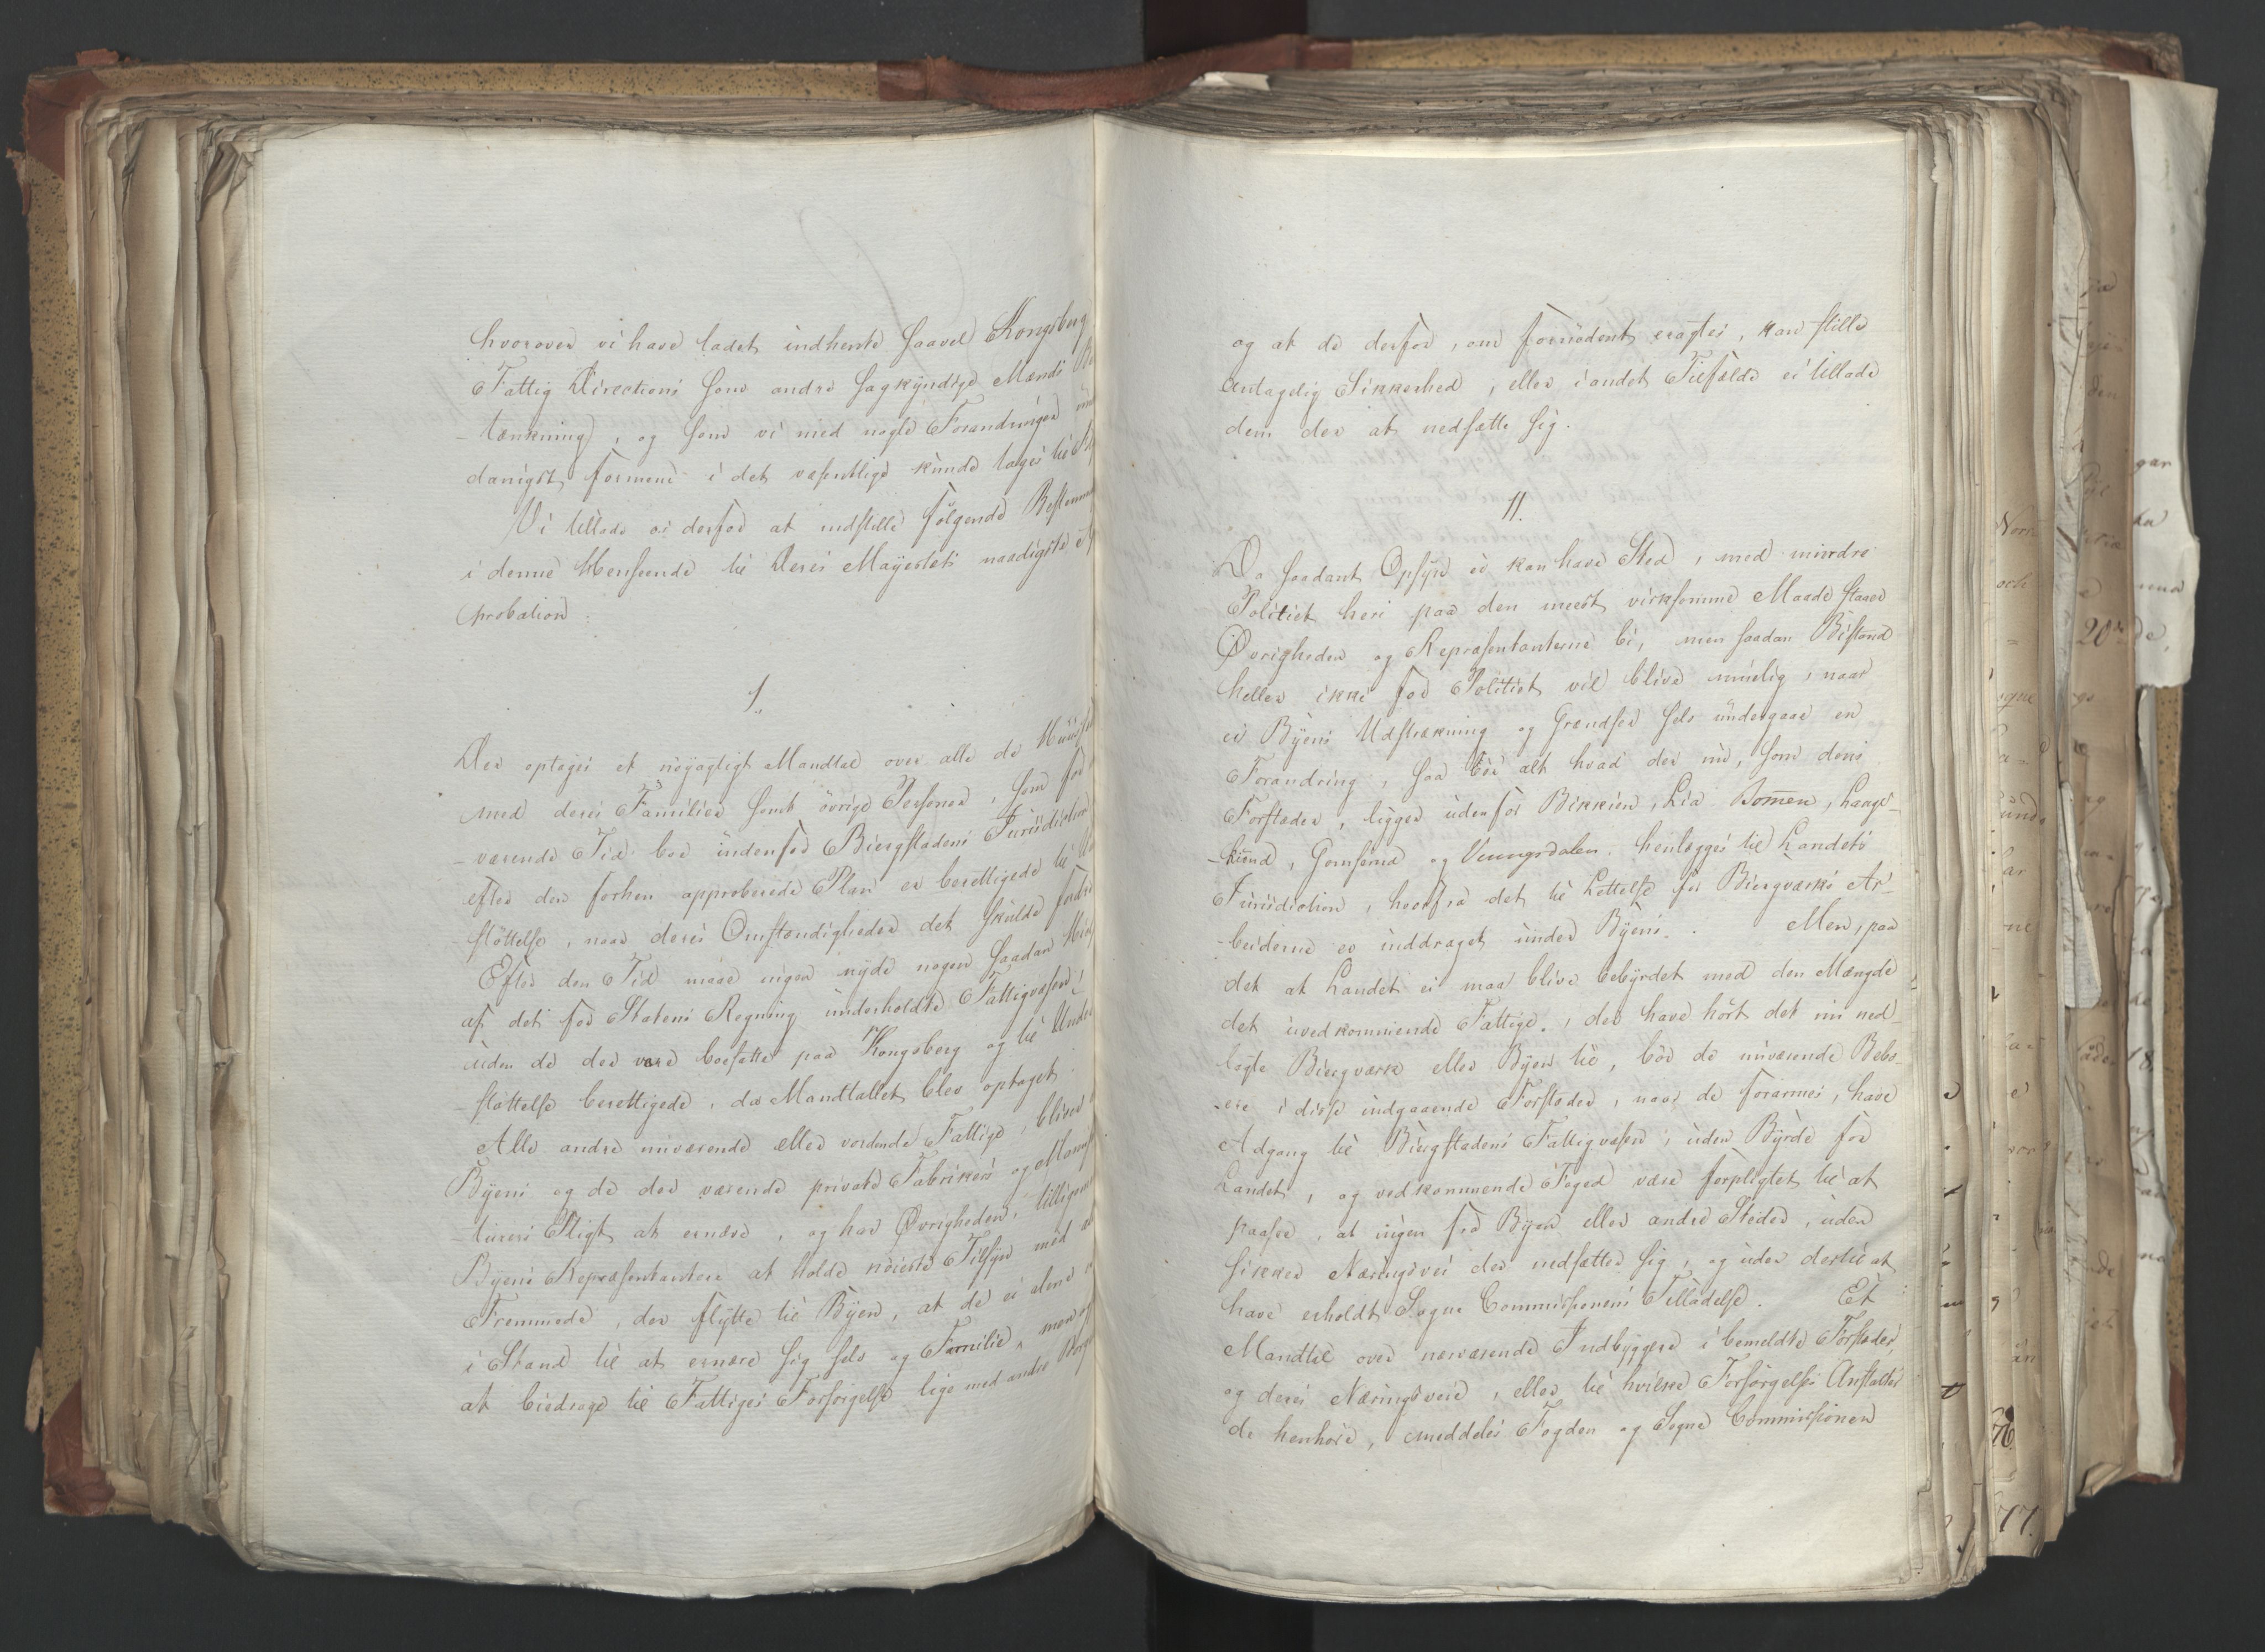 hvorover vi have ladet indhente saavel Kongsberg
Fattig Directions som andre sagkyndige Mænds
-tænkning, og som vi med nogle Forandringer
danigst formene i det væsentlige kunde tages til
Vi tillade os derfor at indstille følgende
i denne Henseende til Deres Mayestæts naadigste
probation:
1.
Der optages et nøyagtigt Mandtal over alle de
med deres Familier samt øvrige Personer, som for
-værende Tid boe indenfor Biergstadens Jurisdiction
efter den forhen approberede Plan er berettigede til
støttelse, naar deres Omstændigheder det skulde
Efter den Tid maae ingen nyde nogen saadan
af det for Statens Regning underholdte Fattigvæsen,
uden de der vare boesatte paa Kongsberg og til Under
-støttelse berettigede, da Mandtallet blev optaget.
Alle andre nuværende eller vordende Fattige, bliver
Byens og de der værende private Fabrikers og
-turers Pligt at ernære, og har Øvrigheden, tilligemed
Byens Repræsentantere at holde nøieste Tilsyn med at
Fremmede, der flytte til Byen, at de ei alene
i Stand til at ernære sig selv og Familie, men og
at bidrage til Fattiges Forsørgelse lige med andre
og at de derfor, om fornødent eragtes, kan stille
antagelig Sikkerhed, eller i andet Tilfælde ei tillade
dem der at nedsætte sig.
11.
Da saadant Opsyn ei kan have Sted, med mindre
Politiet heri paa den meest virksomme Maade staaer
Øvrigheden og Repræsentanterne bi, men saadan Bistand
heller ikke for Politiet vil blive muelig, naar
ei Byens Udstrækning og Grændser selv undergaae en
Forandring, saa bør alt hvad der nu, som dens
Forstæder, ligger udenfor Bikkien, Lia Bommen, Lange-
-kund, Gomsrud og Vennersdalen. henlægges til Landets
Jurisdiction, hvorfra det til Lettelse for Biergværks Ar-
-beiderne er inddraget under Byens. Men, paa
det at Landet ei maa blive bebyrdet med den Mængde
det uvedkommende Fattige, der have hørt det nu ned-
lagte Biergværk eller Byen til, bør de nuværende Bebo-
-ere i disse indgaaende Forstæder, naar de forarmes, have
Adgang til Biergstadens Fattigvæsen, uden Byrde for
Landet, og vedkommende Foged være forpligtet til at
paasee, at ingen fra Byen eller andre Steder, uden
sikker Næringsvei der nedsætter sig, og uden dertil at
have erholdt Sogne Commissionens Tilladelse. Et
Mandtal over nærværende Indbyggere i bemeldte Forstæder,
og deres Næringsveie, eller til hvilke Forsørgelses Anstalter
de henhøre, meddeles Fogden og Sogne Commissionen